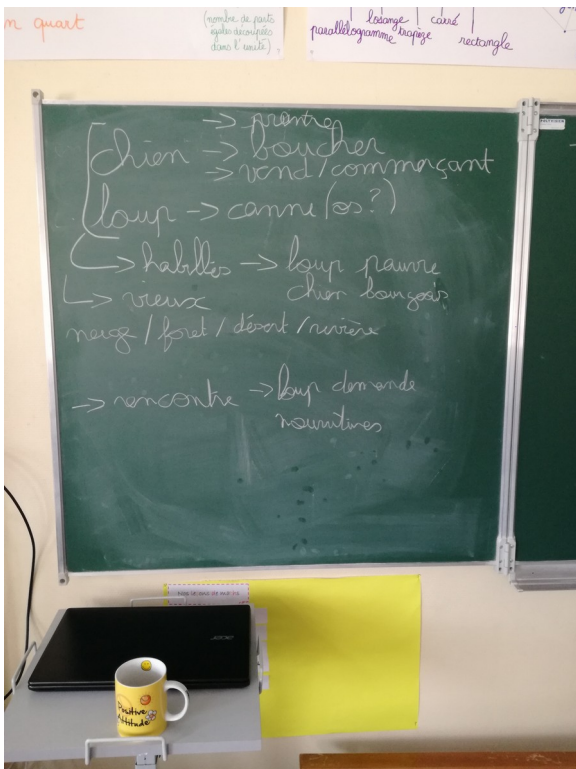 n quart
(nombre de parts
égales découpées
dans l'unité)
parallélogramme
losange
trapèze
carré
rectangle
chien → boucher
→ vend/commerçant
loup → canne (os?)
→ habillés → loup pauvre
chien bourgeois
→ vieux
neige / foret / désert / rivière
→ rencontre → loup demande
nourritures
acer
Positive
Attitude